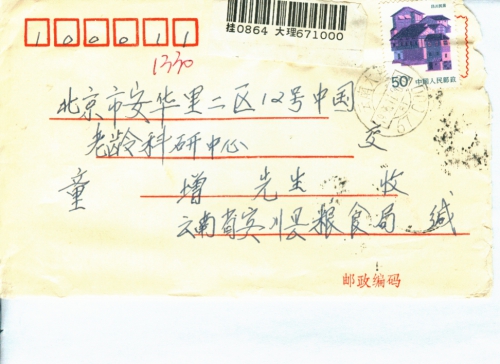 挂0864 大理671000
100011
1330
50分 中国人民邮政
北京市安华里二区12号中国
老龄科研中心 交
童增先生 收
云南省宾川县粮食局 缄
邮政编码